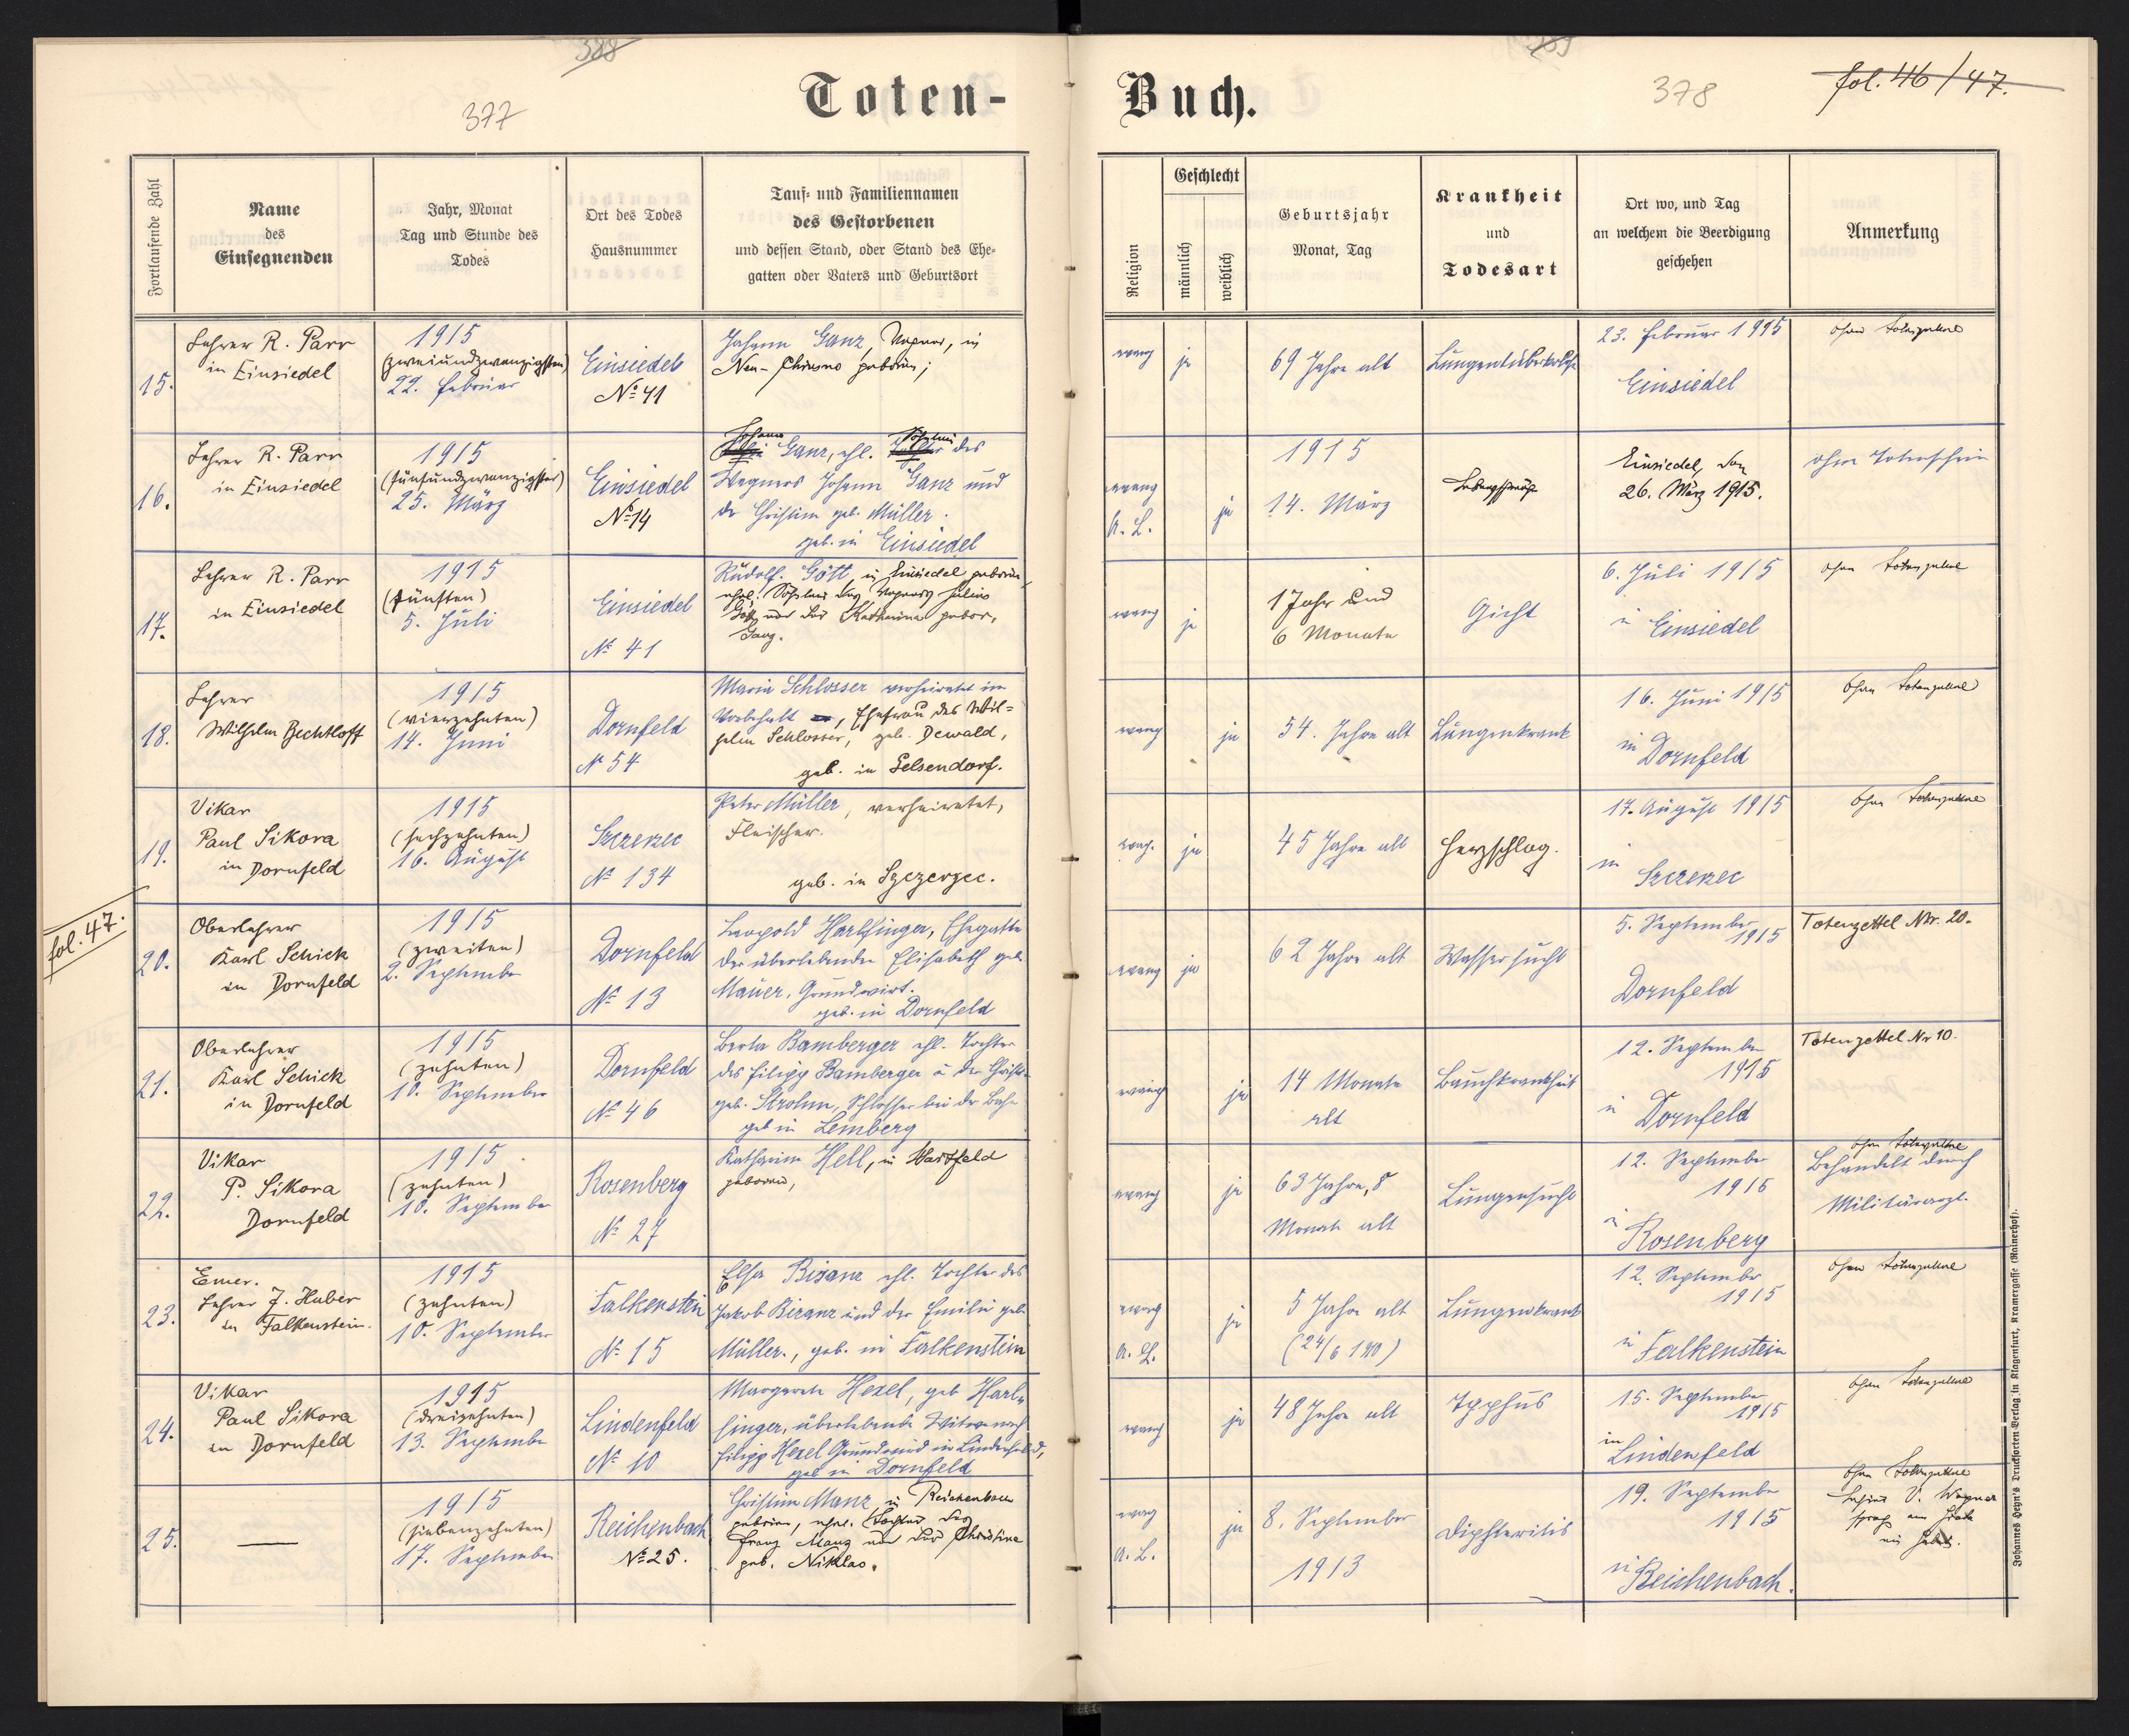 388
377
Toten-
Fortlaufende Zahl
Name
des
Einsegnenden
Jahr, Monat
Tag und Stunde des
Todes
Ort des Todes
Hausnummer
Tauf- und Familiennamen
des Gestorbenen
und dessen Stand, oder Stand des Ehe-
gatten oder Vaters und Geburtsort
15.
Lehrer R. Parr
in Einsiedel
1915
(zweiundzwanzigsten)
22. Februar
Einsiedel
№ 41
Johann Ganz, Wagner, in
Neu-Chrusno geboren;
16.
Lehrer R. Parr
in Einsiedel
1915
(fünfundzwanzigster)
25. März
Einsiedel
№ 14
Johann Söhnlein
Ganz, ehl. Tochter des
Wagners Johann Ganz und
der Christine geb. Müller.
geb. in Einsiedel
17.
Lehrer R. Parr
in Einsiedel
1915
(fünften)
5. Juli
Einsiedel
№ 41
Rudolf. Gött, in Einsiedel geboren,
ehel. Söhnlein des Wagners Julius
Gött und der Katharina gebor,
Ganz.
18.
Lehrer
Wilhelm Bechtloff
1915
(vierzehnten)
14. Juni
Dornfeld
№ 54
Maria Schlosser verheiratet im
Vorbehalt, Ehefrau des Wil=
helm Schlosser, geb. Dewald,
geb. in Gelsendorf.
19.
Vikar
Paul Sikora
in Dornfeld
1915
(sechzehnten)
16. August
Szczerzec
№ 134
Peter Müller, verheiratet,
Fleischer.
geb. in Szczerzec.
fol. 47.
20.
Oberlehrer
Karl Schick
in Dornfeld
1915
(zweiten)
2. September
Dornfeld
№ 13
Leopold Harlfinger, Ehegatte
der überlebenden Elisabeth geb.
Mauer, Grundwirt.
geb. in Dornfeld
21.
Oberlehrer
Karl Schick
in Dornfeld
1915
(zehnten)
10. September
Dornfeld
№ 46
Berta Bamberger ehl. Tochter
des Filipp Bamberger u. der Christ.
geb. Strohm, Schlosser bei der Bahn
geb in Lemberg
22.
Vikar
P. Sikora
Dornfeld
1915
(zehnten)
10. September
Rosenberg
№ 27
Katharina Hell, in Hartfeld
geboren,
23.
Emer.
Lehrer J. Huber
in Falkenstein.
1915
(zehnten)
10. September
Falkenstein
№ 15
Elsa Bisanz ehl. Tochter des
Jakob Bisanz und der Emilie geb.
Müller., geb. in Falkenstein
24.
Vikar
Paul Sikora
in Dornfeld
1915
(dreizehnten)
13. September
Lindenfeld
№ 10
Margarete Hexel, geb Harl-
finger, überlebende Witwe nach
Filipp Hexel Grundwirt in Lindenfeld,
geb in Dornfeld
25.
—
1915
(siebenzehnten)
17. September
Reichenbach
№ 25.
Christine Manz, in Reichenbach
geboren, ehel. Tochter des
Franz Manz und der Christine
geb. Niklas.
Buch.
378
fol. 46/47.
Religion
Geschlecht
männlich
weiblich
Geburtsjahr
Monat, Tag
Krankheit
und
Todesart
Ort wo, und Tag
an welchem die Beerdigung
geschehen
Anmerkung
evang
ja
69 Jahre alt
Lungentuberkulose
23. Februar 1915
Einsiedel
ohne Totenzettel
evang
A. L.
ja
1915
14. März
Lebensschwäche
Einsiedel, den
26. März 1915.
ohne Totenschein
evang
ja
1 Jahr und
6 Monate
Gicht
6. Juli 1915
in Einsiedel
ohne Totenzettel
evang
ja
54. Jahre alt
Lungenkrank
16. Juni 1915
in Dornfeld
ohne Totenzettel
evang.
ja
45 Jahre alt
Herzschlag.
17. August 1915
in
Szczerzec
ohne Totenzettel
evang
ja
62 Jahre alt
Wassersucht
5. September
1915
Dornfeld
Totenzettel Nr. 20.
evang
ja
14 Monate
alt
Bauchkrankheit
12. September
1915
in Dornfeld
Totenzettel Nr 10.
evang
ja
63 Jahre, 8
Monate alt
Lungensucht
12. September
1915
in
Rosenberg
ohne Totenzettel
Behandelt durch
Militärarzt.
evang
A. L.
ja
5 Jahre alt
(24/6 190)
Lungenkrank
12. September
1915
in Falkenstein
ohne Totenzettel
evang
ja
48 Jahre alt
Typhus
15. September
1915
in
Lindenfeld
ohne Totenzettel
evang
A. L.
ja
8. September
1913
Diphteritis
19. September
1915
in Reichenbach.
ohne Totenzettel
Lehrer V. Wagner
sprach am Grabe
ein Gebet.
Johannes Heyn's Drucksorten Verlag in Klagenfurt, Kramergasse (Rainerhof).